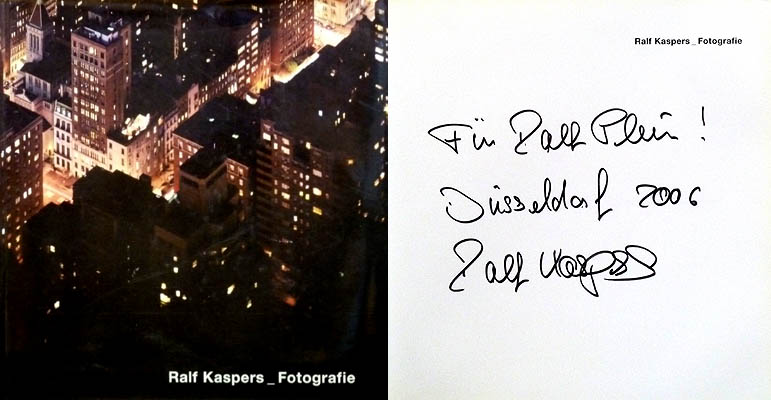 Ralf Kaspers_Fotografie
Ralf Kaspers_Fotografie
Für Ralf Plein!
Düsseldorf 2006
Ralf Kaspers